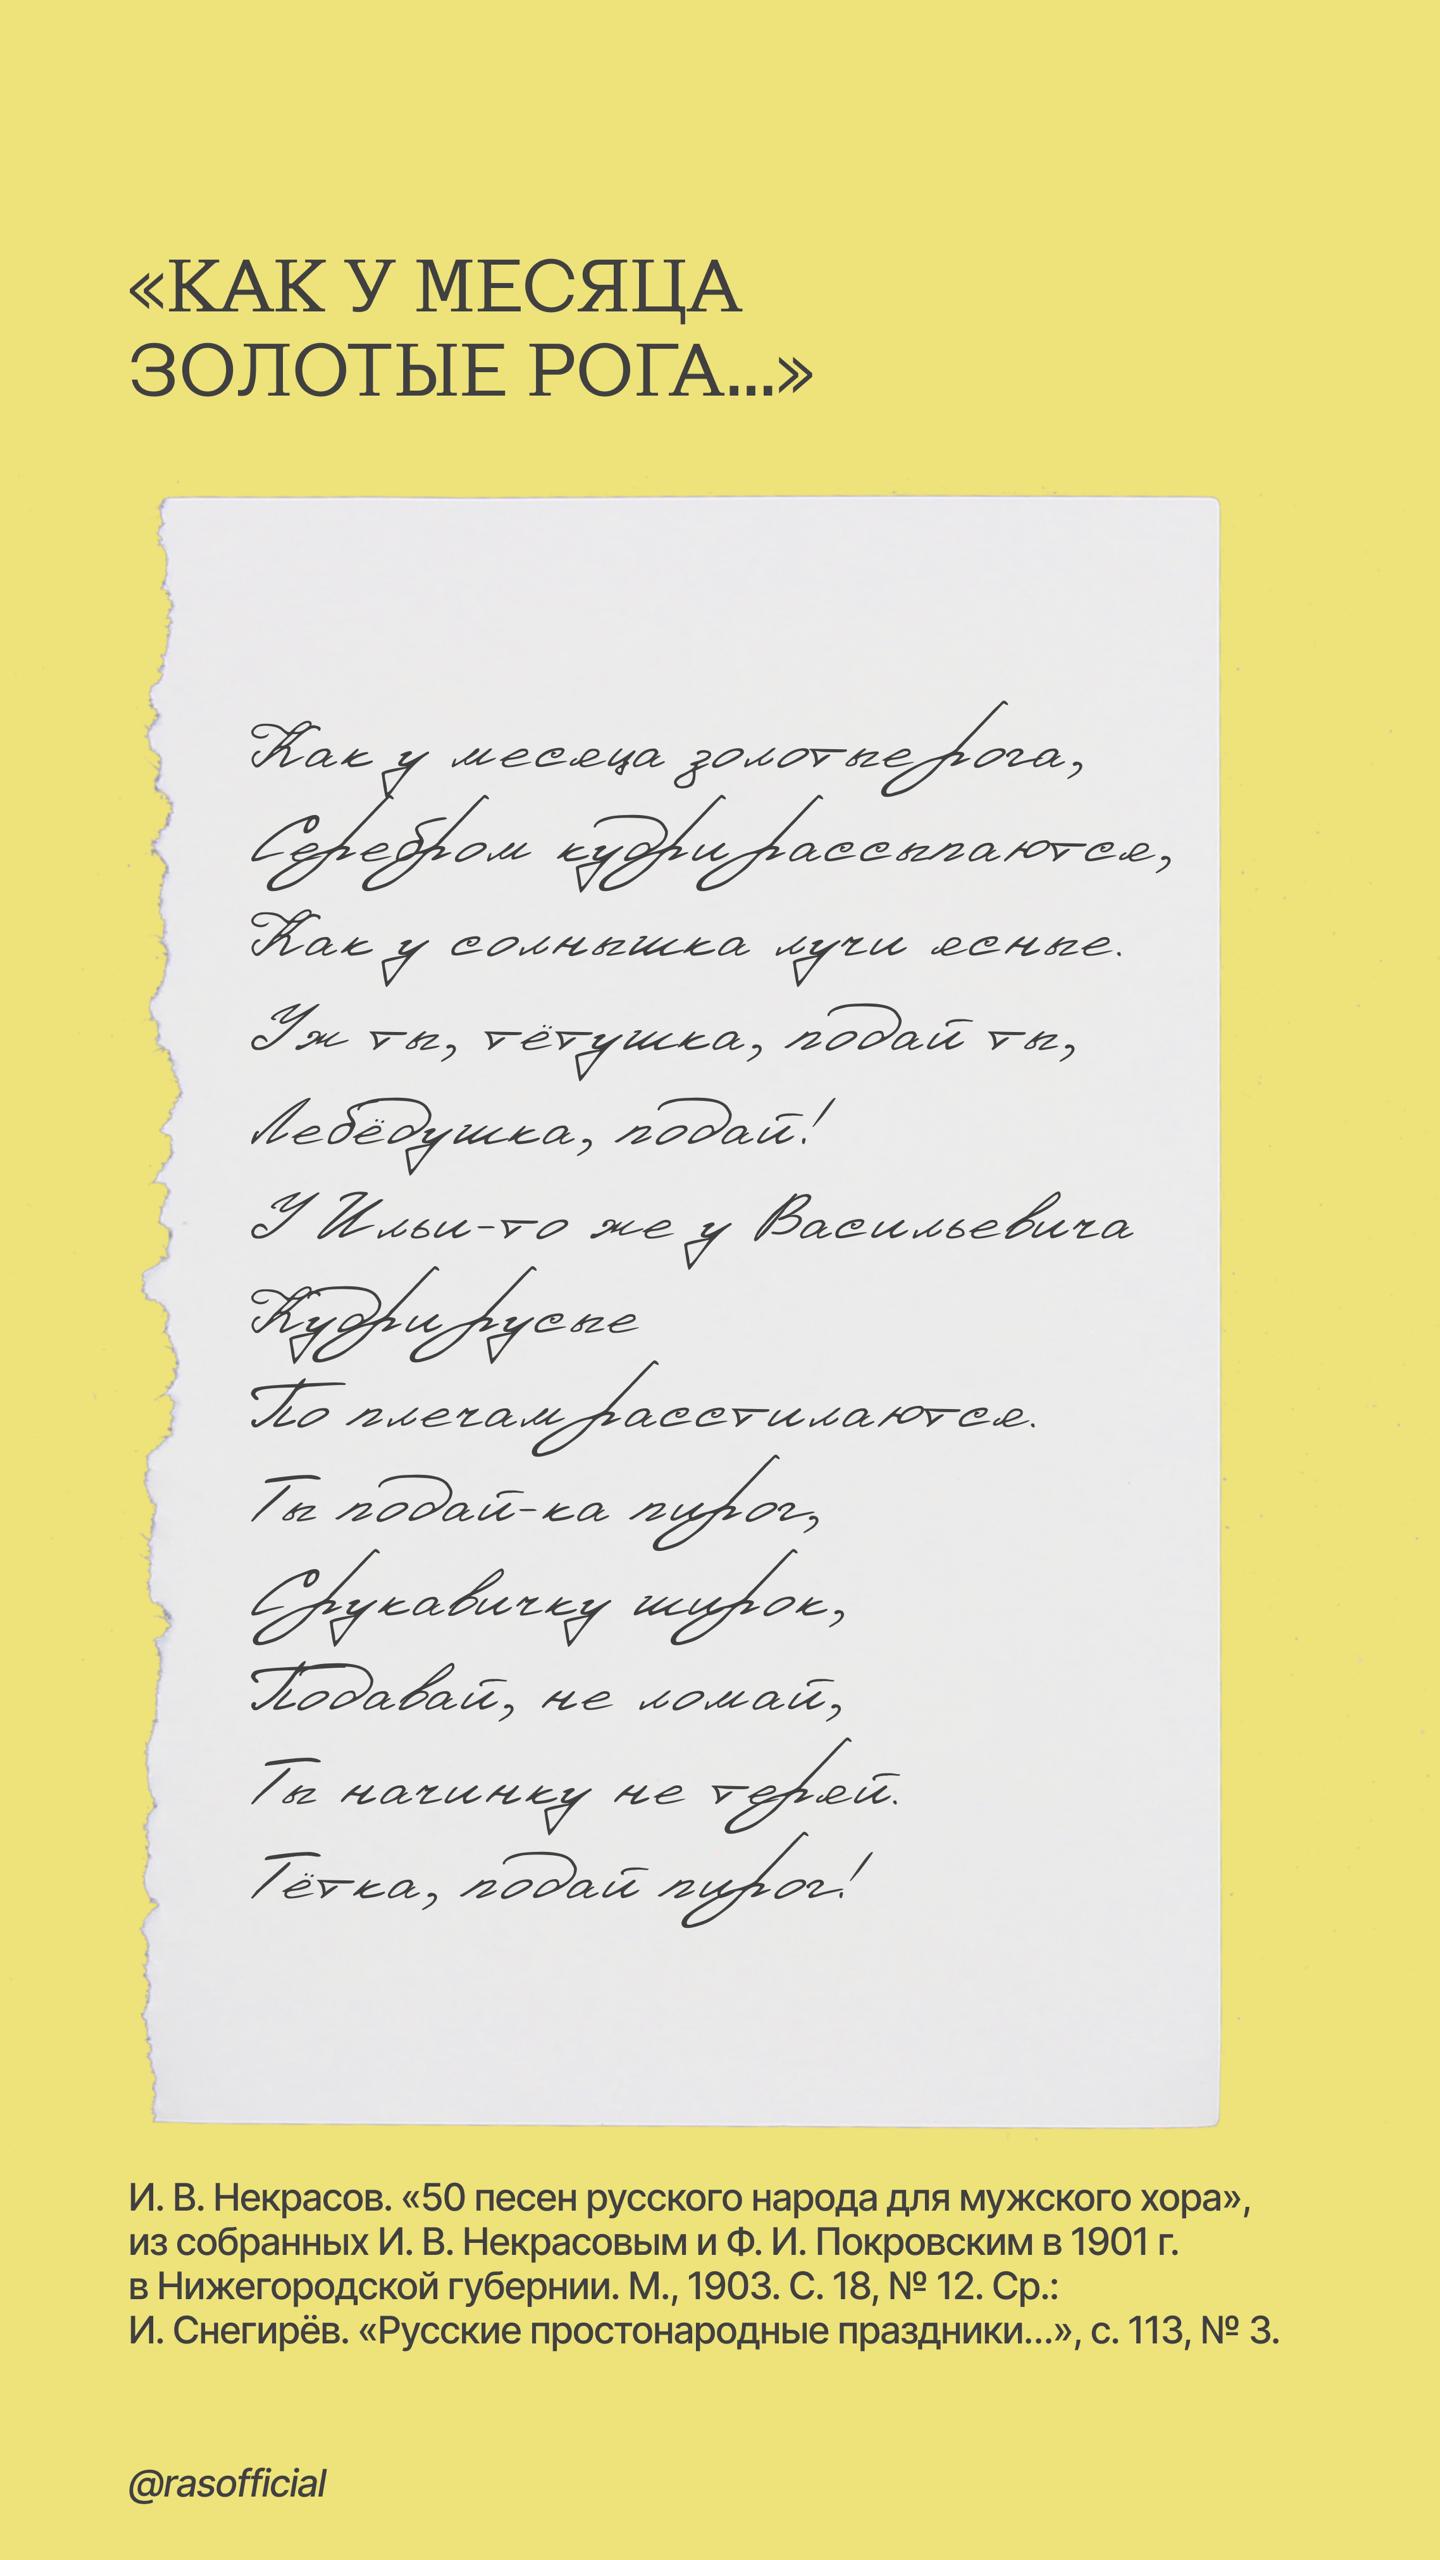 «КАК У МЕСЯЦА
ЗОЛОТЫЕ РОГА...»
Как у месяца золотые рога,
Серебром кудри рассыпаются,
Как у солнышка лучи ясные.
Уж ты, тётушка, подай ты,
Лебёдушка, подай!
У Ильи-то же у Васильевича
Кудри русые
По плечам расстилаются.
Ты подай-ка пирог,
С рукавичку широк,
Подавай, не ломай,
Ты начинку не теряй.
Тётка, подай пирог!
И. В. Некрасов. «50 песен русского народа для мужского хора»,
из собранных И. В. Некрасовым и Ф. И. Покровским в 1901 г.
в Нижегородской губернии. М., 1903. С. 18, № 12. Ср.:
И. Снегирёв. «Русские простонародные праздники...», с. 113, № 3.
@rasofficial